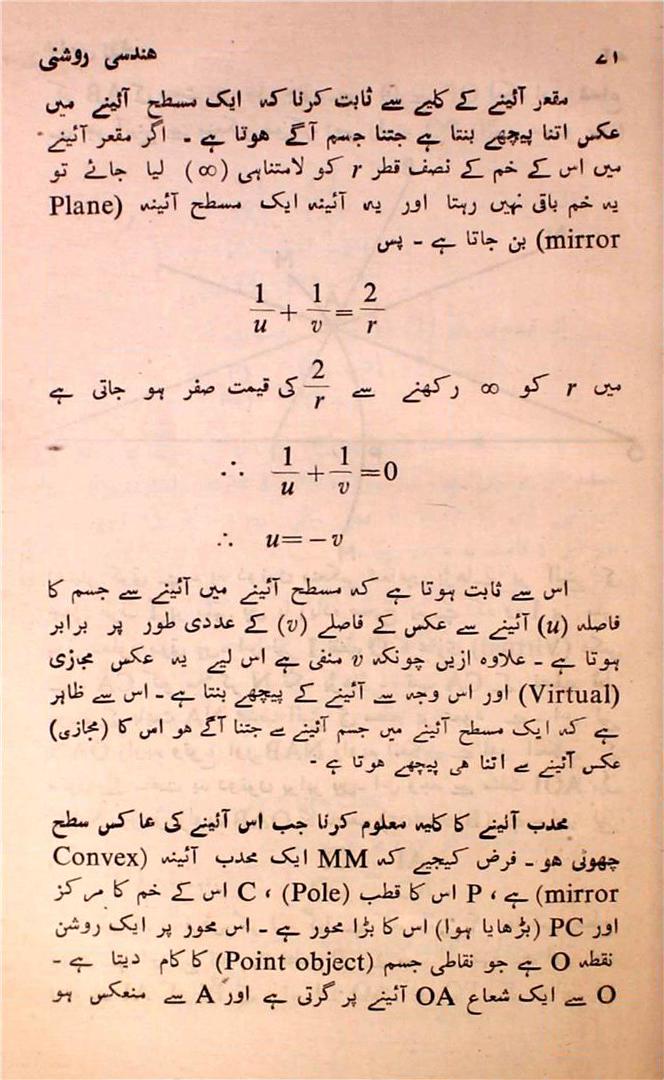 ۷۱ هندسی روشنی
مقعر آئینے کے کلیے سے ثابت کرنا کہ ایک مسطح آئینے میں
عکس اتنا پیچھے بنتا ہے جتنا جسم آگے ہوتا ہے ۔ اگر مقعر آئینے
میں اس کے خم کے نصف قطر r کو لامتناہی (∞) لیا جائے تو
یہ خم باقی نہیں رہتا اور یہ آئینہ ایک مسطح آئینہ (Plane
mirror) بن جاتا ہے ۔ پس
1/u + 1/v = 2/r
میں r کو ∞ رکھنے سے 2/r کی قیمت صفر ہو جاتی ہے
∴ 1/u + 1/v = 0
∴ u = − v
اس سے ثابت ہوتا ہے کہ مسطح آئینے میں آئینے سے جسم کا
فاصلہ (u) آئینے سے عکس کے فاصلے (v) کے عددی طور پر برابر
ہوتا ہے ۔ علاوہ ازیں چونکہ v منفی ہے اس لیے یہ عکس مجازی
(Virtual) اور اس وجہ سے آئینے کے پیچھے بنتا ہے ۔ اس سے ظاہر
ہے کہ ایک مسطح آئینے میں جسم آئینے سے جتنا آگے ہو اس کا (مجازی)
عکس آئینے سے اتنا ہی پیچھے ہوتا ہے ۔
محدب آئینے کا کلیہ معلوم کرنا جب اس آئینے کی عاکس سطح
چھوٹی ہو ۔ فرض کیجیے کہ MM ایک محدب آئینہ (Convex
mirror) ہے ، P اس کا قطب (Pole) ، C اس کے خم کا مرکز
اور PC (بڑھایا ہوا) اس کا بڑا محور ہے ۔ اس محور پر ایک روشن
نقطہ O ہے جو نقاطی جسم (Point object) کا کام دیتا ہے ۔
O سے ایک شعاع OA آئینے پر گرتی ہے اور A سے منعکس ہو